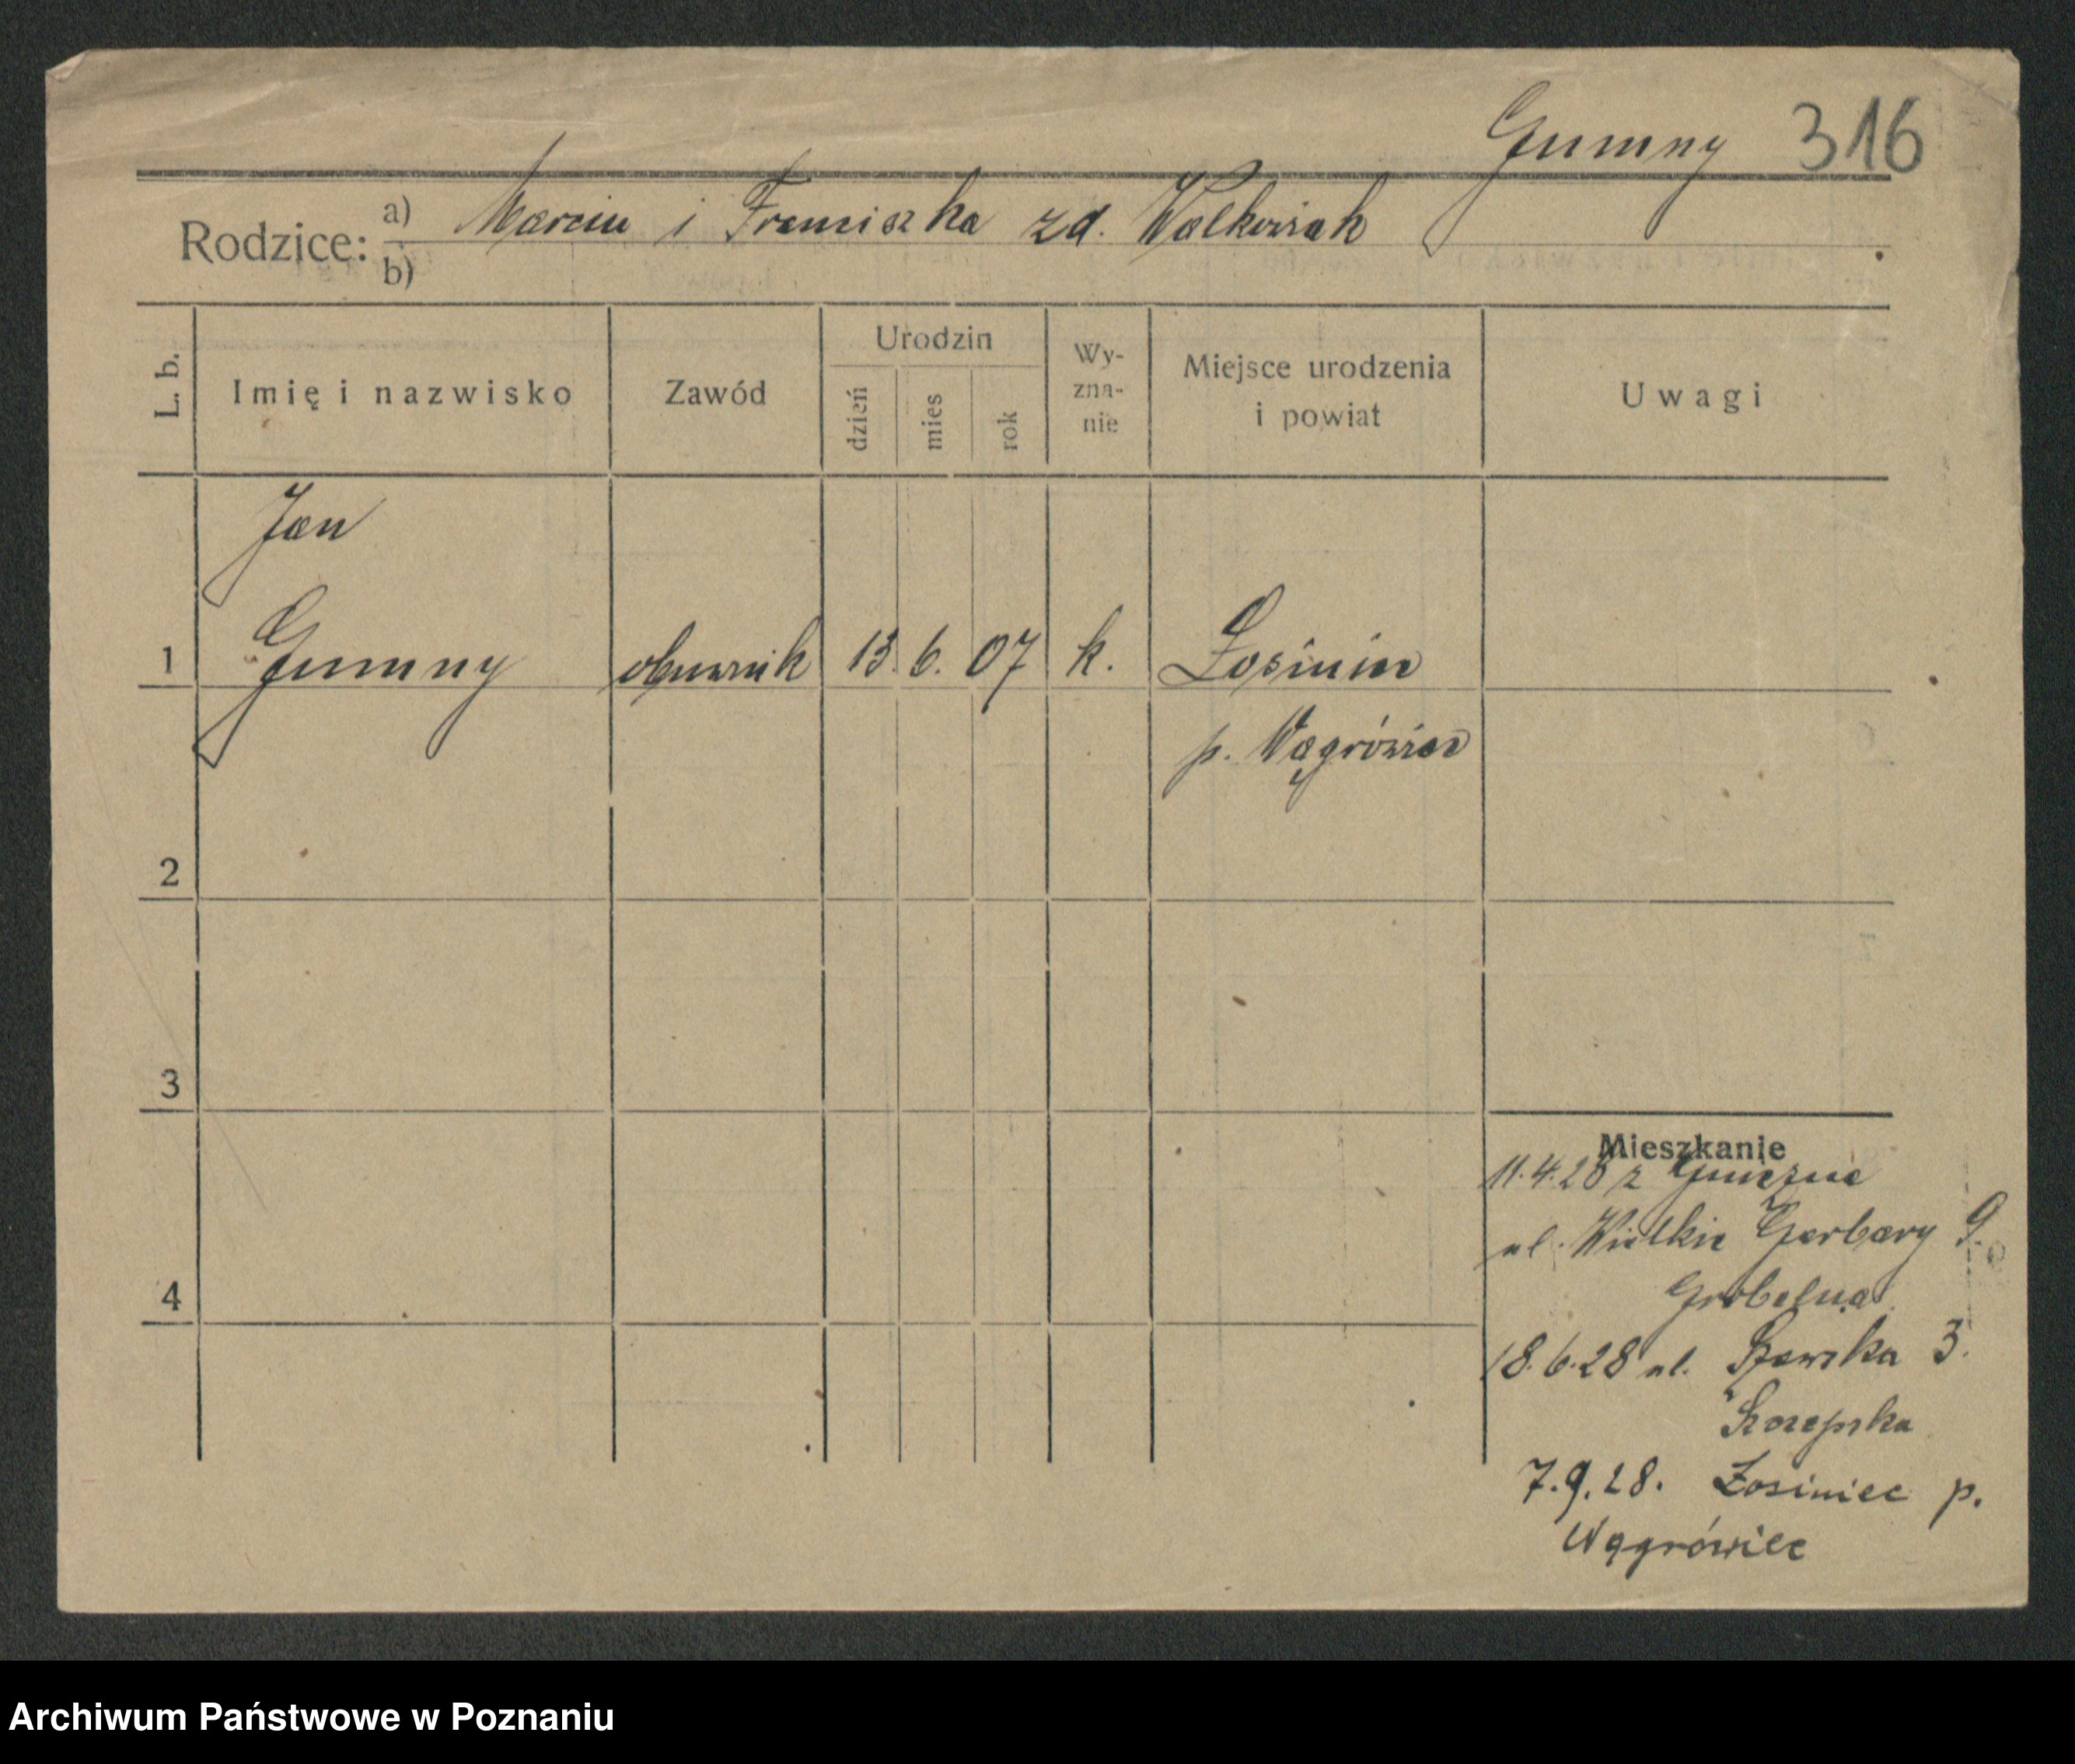 Gumny 316
Rodzice: a) Marcin i Franciszka zd. Walkowiak
b)
L. b. Imię i nazwisko Zawód Urodzin dzień mies rok Wy-zna-nie Miejsce urodzenia i powiat Uwagi
Jan
1 Gumny obuwnik 13. 6. 07 k. Łosiniec
p. Wągrówiec
2
3
Mieszkanie
11.4.28 z Gniezna
ul. Wielkie Garbary 9.
4 Grobelna
18.6.28 ul. Szewska 3.
Szczepska
7.9.28. Łosiniec p.
Wągrówiec
Archiwum Państwowe w Poznaniu